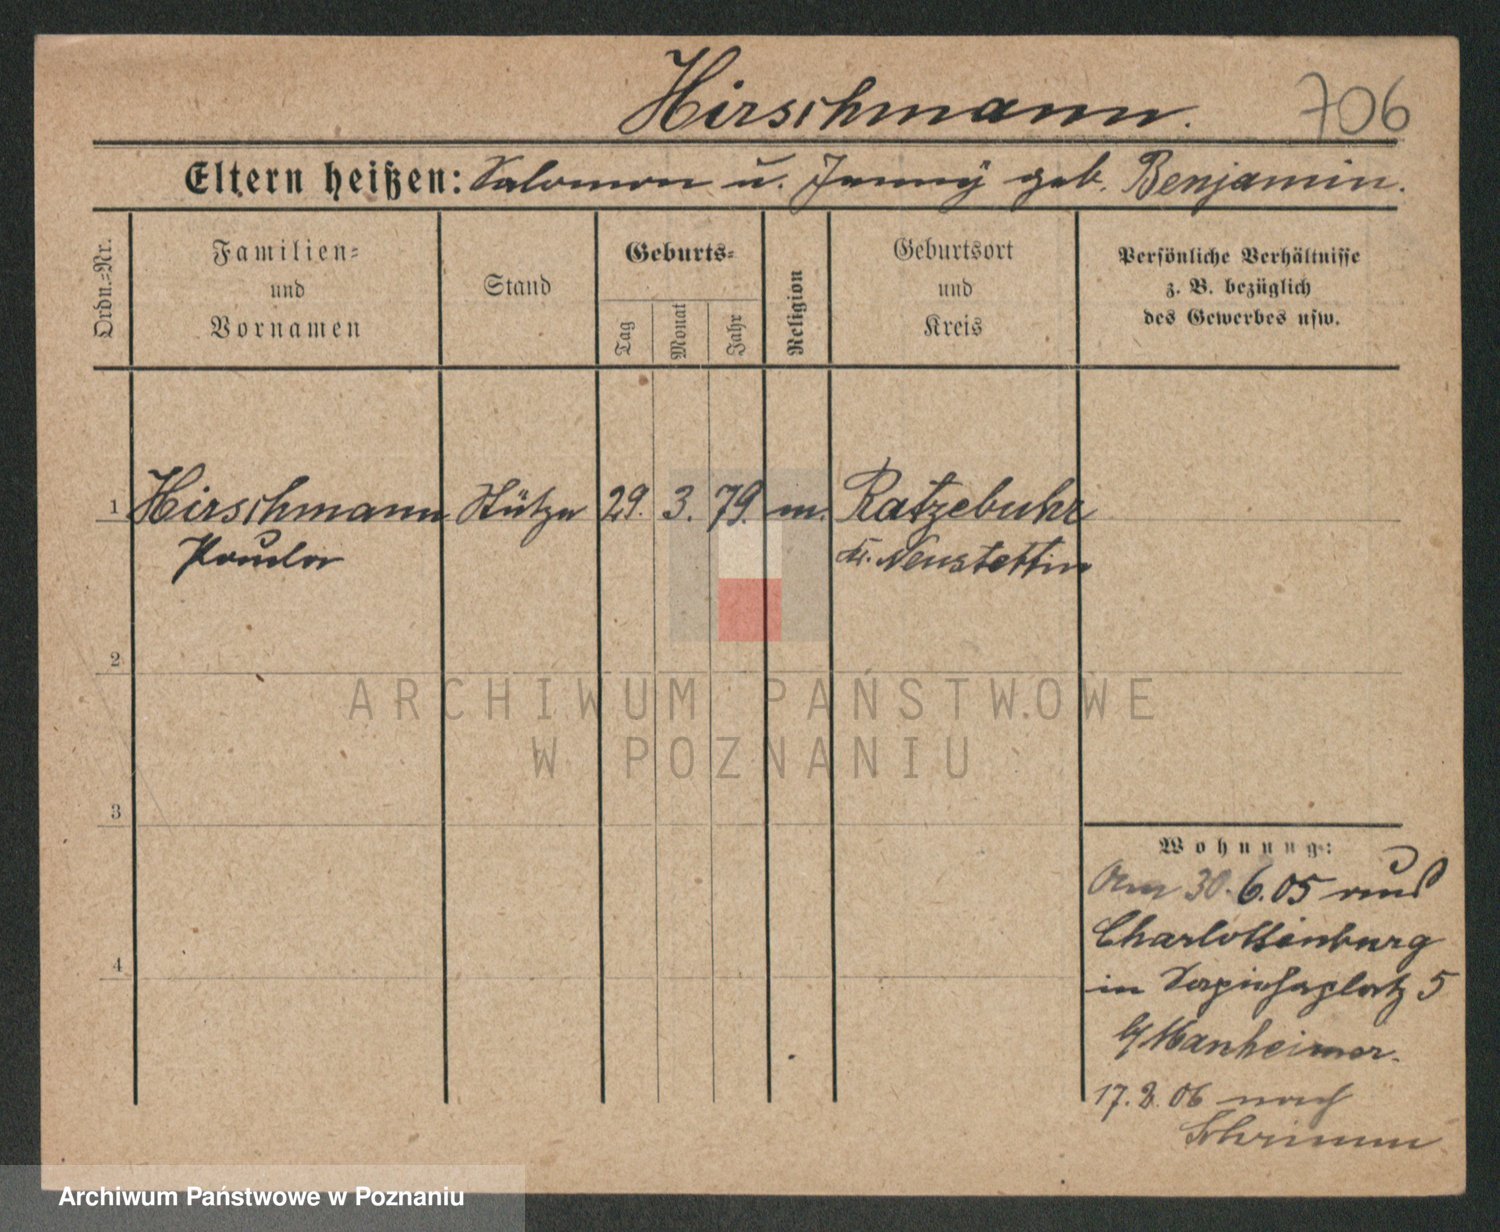 Hirschmann. 706
Eltern heißen: Salomon u. Jenny geb. Benjamin.
Ordn.=Nr.
Familien=
und
Vornamen
Stand
Geburts=
Tag
Monat
Jahr
Religion
Geburtsort
und
Kreis
Persönliche Verhältnisse
z. B. bezüglich
des Gewerbes usw.
1 Hirschmann Stütze 29. 3. 79. m. Ratzebuhr
Paula Kr. Neustettin
2
3
4
Wohnung:
Am 30.6.05 aus
Charlottenburg
in Sapiehaplatz 5
b/Manheimer.
17. 2. 06 nach
Schrimm
ARCHIWUM PAŃSTWOWE
W POZNANIU
Archiwum Państwowe w Poznaniu